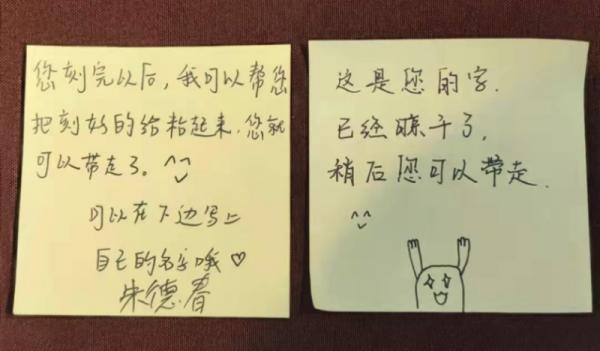 您刻完以后，我可以帮您
把刻好的给粘起来，您就
可以带走了。
可以在下边写上
自己的名字哦♡
朱德春
这是您的字.
已经晾干了，
稍后您可以带走.